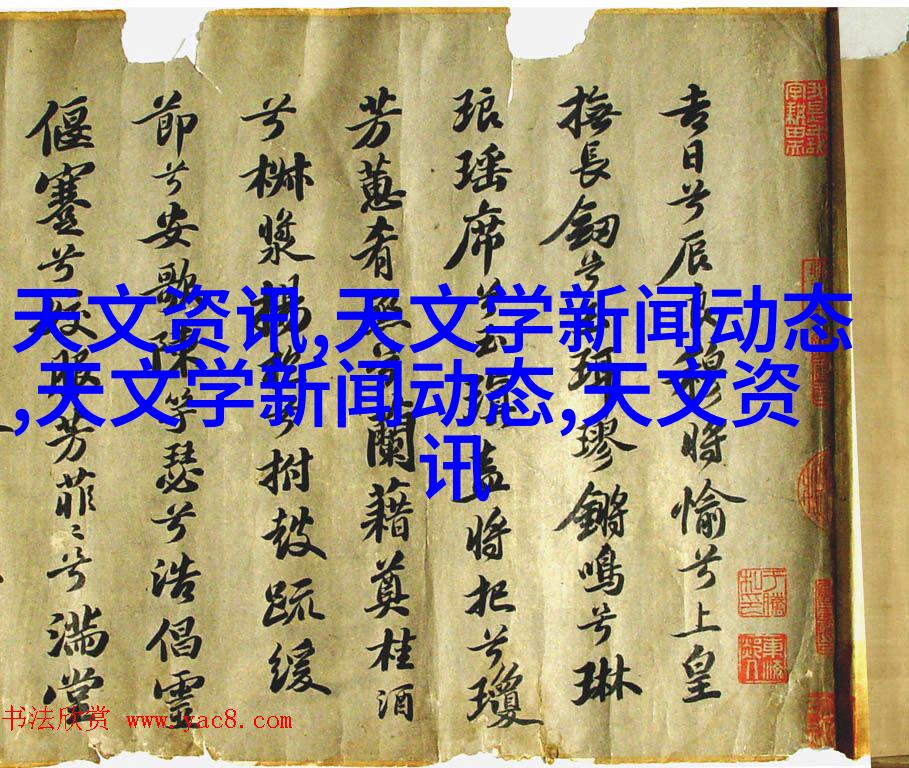 吉日兮辰良穆將愉兮上皇
撫長劒兮珥璆鏘鳴兮琳
琅瑶席兮玉瑱盍將把兮瓊
芳蕙肴兮蘭藉奠桂酒
兮椒漿揚兮拊鼓疏緩
節兮安歌陳竽瑟兮浩倡靈
偃蹇兮姣服芳菲々兮滿堂
天文资讯,天文学新闻动态
,天文学新闻动态,天文资
讯
书法欣赏 www.yac8.com